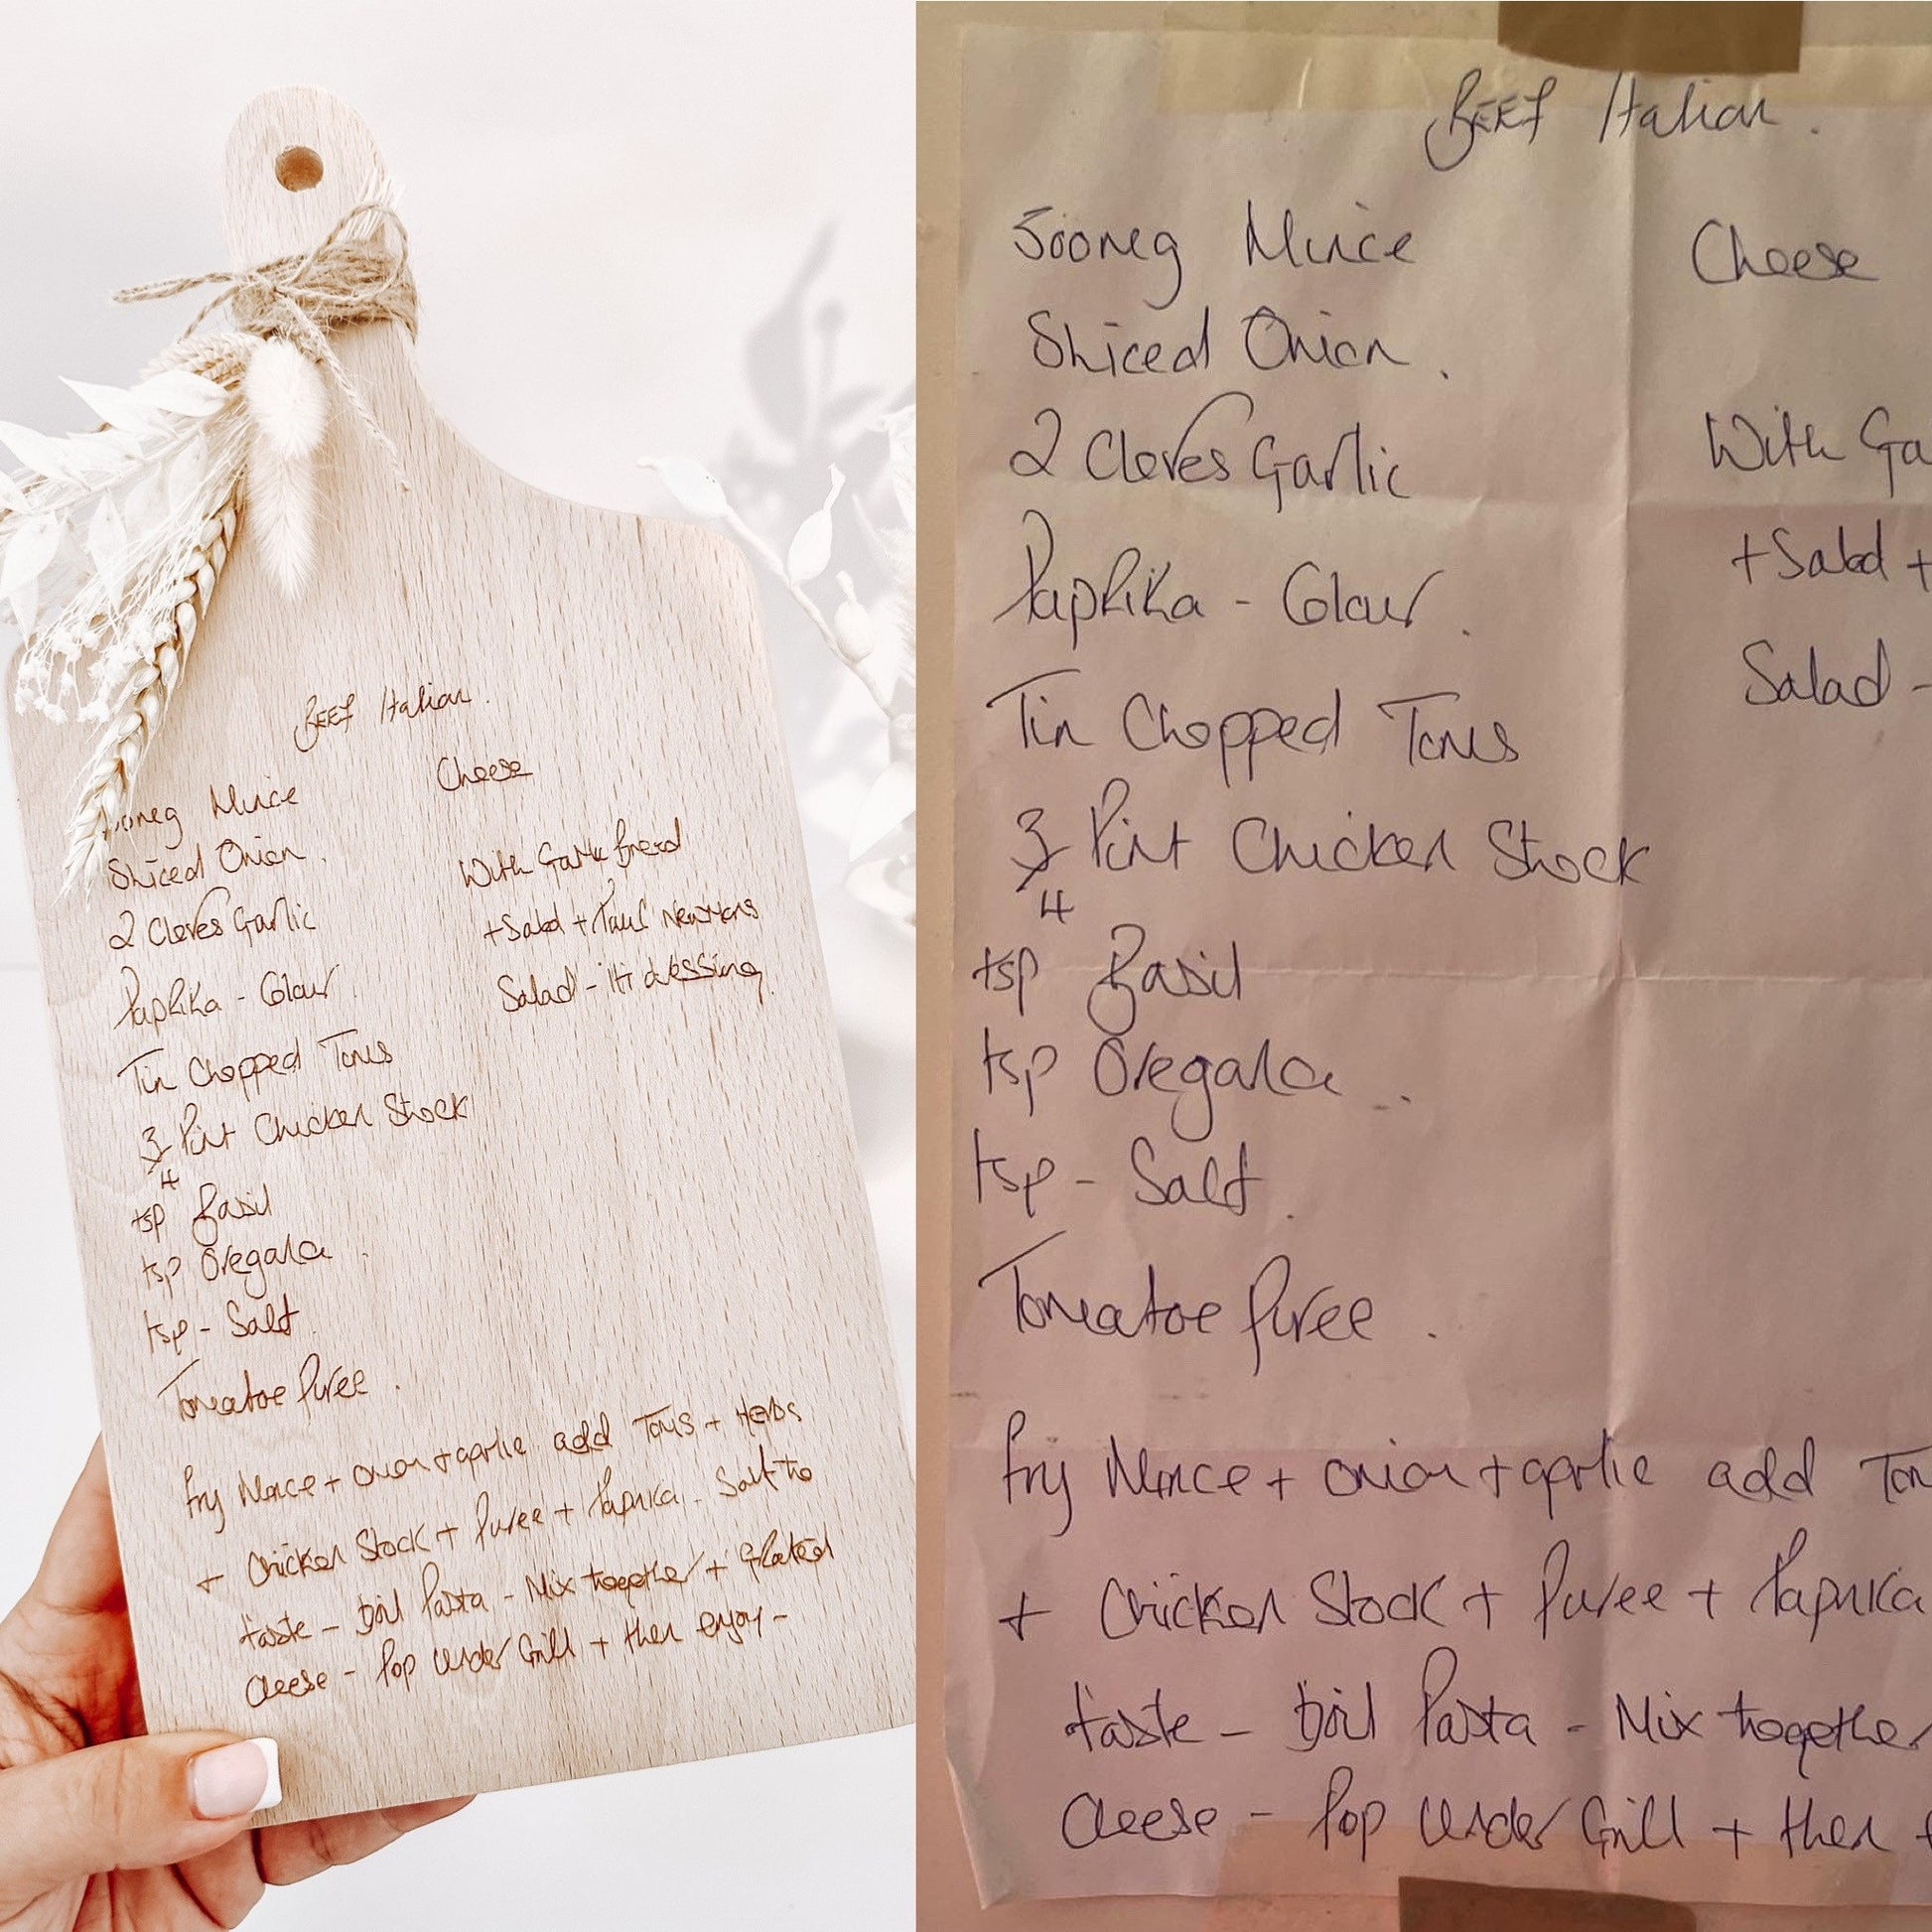 BEEF Italian.
Cheese
Mince
Sliced Onion.
With Garlic bread
2 Cloves Garlic
+ Salad + Paul Newmans
Paprika - Colour.
Salad - Iti dressing.
Tin Chopped Toms
3/4 Pint Chicken Stock
tsp Basil
tsp Oregano.
tsp - Salt.
Tomatoe Puree.
Fry Mince + onion + garlic add Toms + Herbs
+ Chicken Stock + Puree + Paprika. Salt to
taste - boil Pasta - Mix together + Grated
cheese - Pop under Grill + then enjoy -
BEEF Italian.
500mg Mince
Cheese
Sliced Onion.
2 Cloves Garlic
With Ga
Paprika - Colour.
+ Salad +
Tin Chopped Toms
Salad -
3/4 Pint Chicken Stock
tsp Basil
tsp Oregano.
tsp - Salt.
Tomatoe Puree.
Fry Mince + onion + garlic add Tom
+ Chicken Stock + Puree + Paprika
taste - boil Pasta - Mix together
cheese - Pop under Grill + then